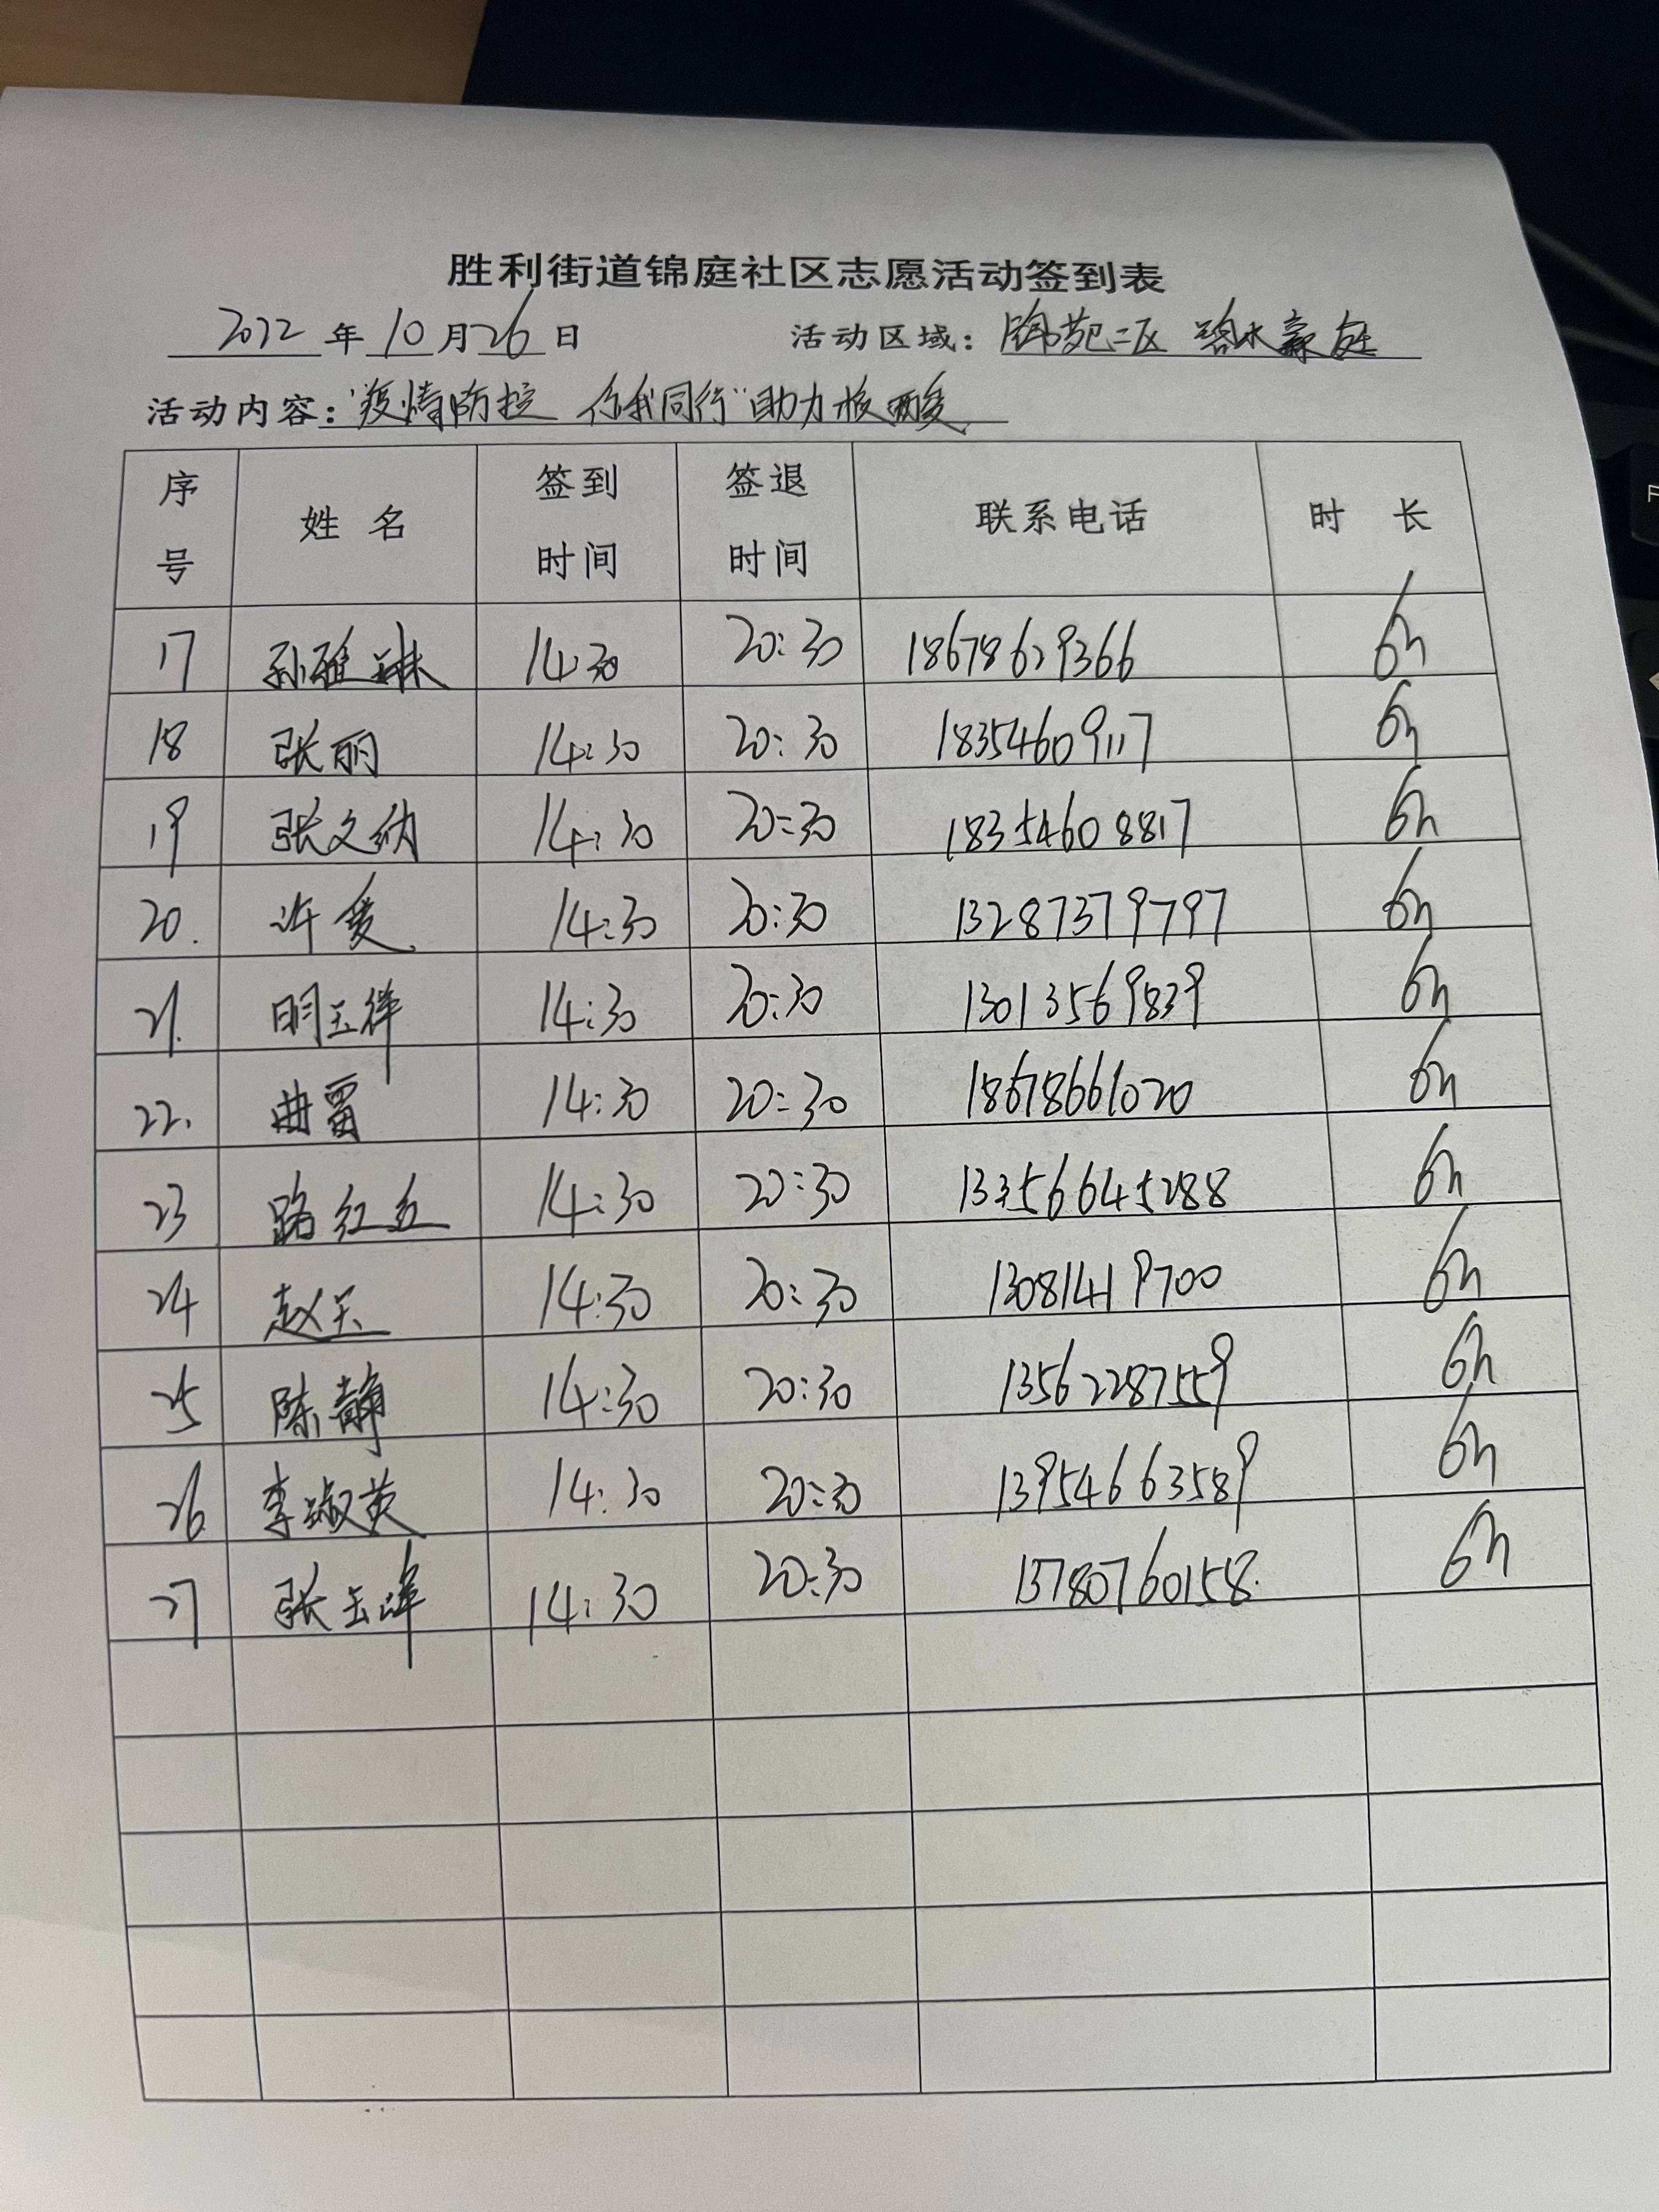 胜利街道锦庭社区志愿活动签到表
2022 年 10 月 26 日 活动区域: 锦苑二区
活动内容:"疫情防控 你我同行"助力核酸
序号 姓名 签到时间 签退时间 联系电话 时长
17 孙雅琳 14:30 20:30 18678629366 6h
18 张丽 14:30 20:30 18354609117 6h
19 张文纳 14:30 20:30 18354608817 6h
20. 许爱 14:30 20:30 13287379797 6h
21. 明玉祥 14:30 20:30 13013569839 6h
22. 曲雷 14:30 20:30 18678661020 6h
23 路红 14:30 20:30 13356645288 6h
24 赵 14:30 20:30 13081419700 6h
25 陈静 14:30 20:30 13562287559 6h
26 李淑英 14:30 20:30 13954663589 6h
27 张玉峰 14:30 20:30 13780760158. 6h